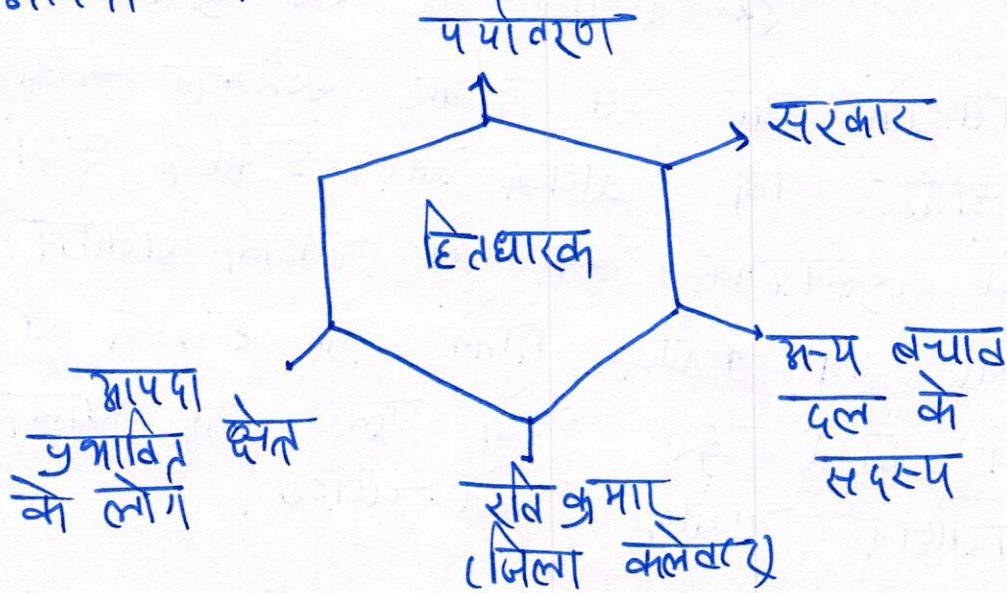 पर्यावरण
सरकार
हितधारक
अन्य बचाव
दल के
सदस्य
आपदा
प्रभावित क्षेत्र
के लोग
रवि कुमार
(जिला कलेक्टर)